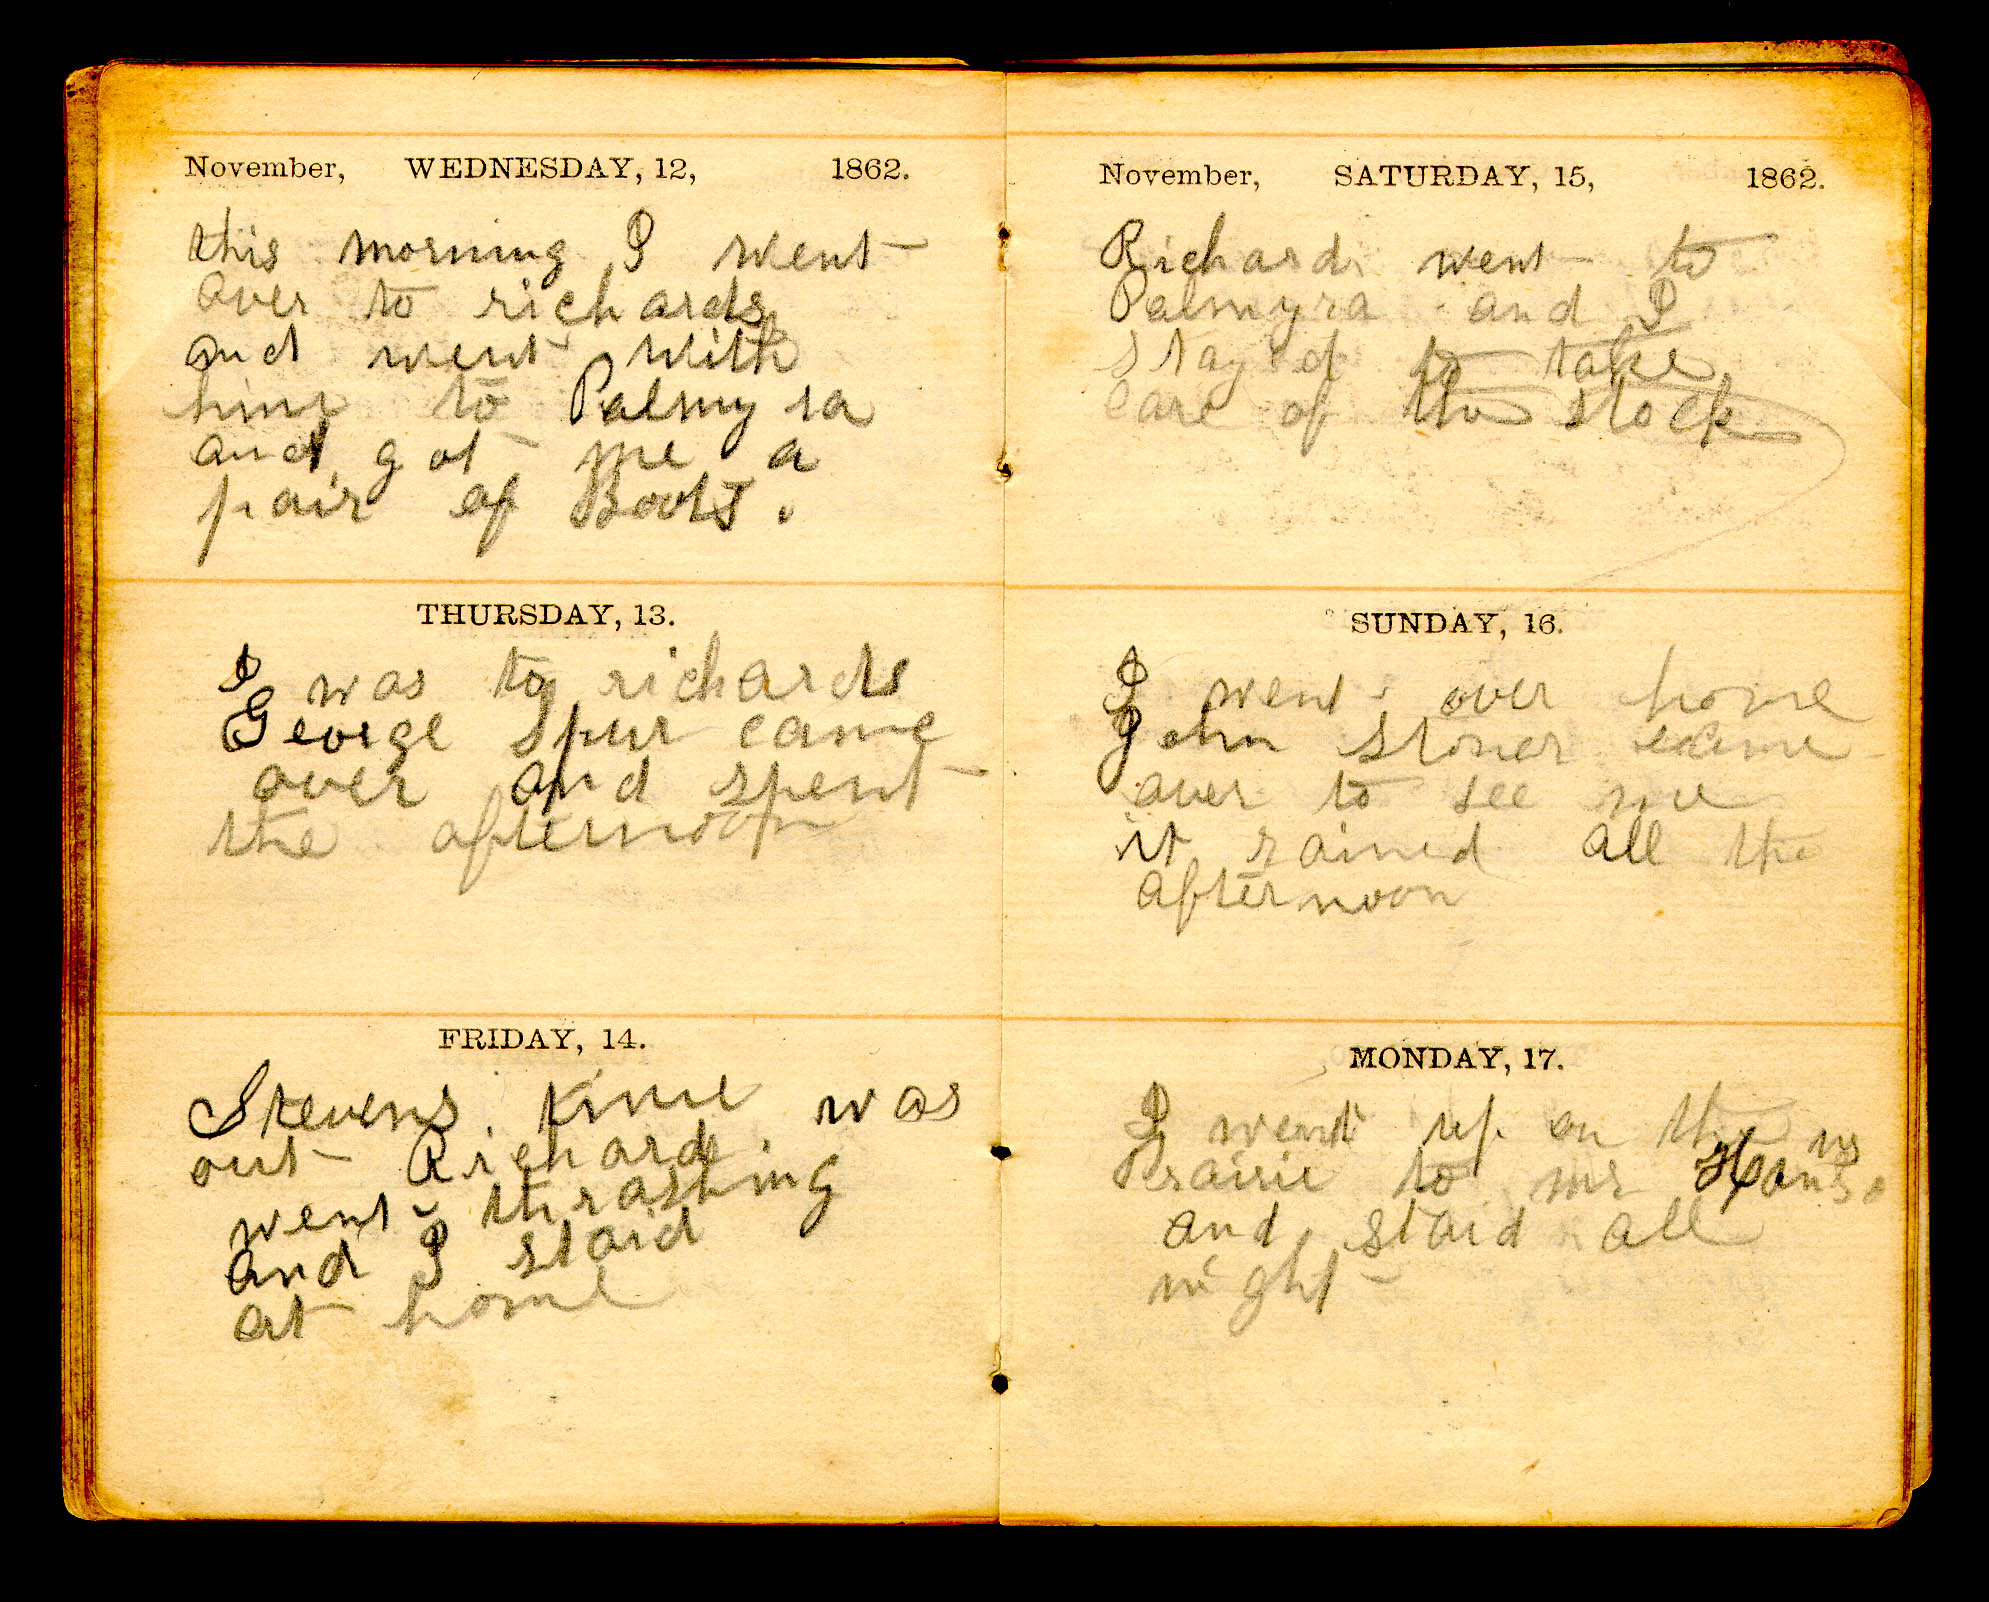 November, WEDNESDAY, 12, 1862.
this morning I went
over to richards
and went with
him to Palmyra
and got me a
pair of Boots.
THURSDAY, 13.
I was to richards
George Spur came
over and spent
the afternoon
FRIDAY, 14.
Stevens was
out Richards
went thrashing
and I staid
at home
November, SATURDAY, 15, 1862.
Richards went to
Palmyra and I
stayed to take
care of the stock
SUNDAY, 16.
I went over home
John Stoner came
over to see me
it rained all the
afternoon
MONDAY, 17.
I went up on the
Prairie to mr
and staid all
night